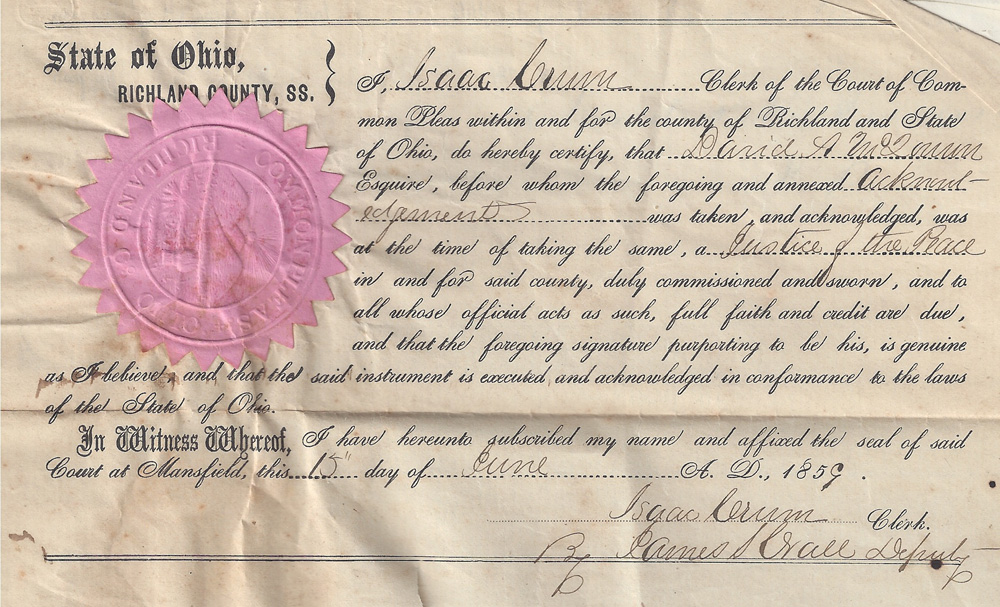 State of Ohio,
RICHLAND COUNTY, SS.
RICHLAND CO COMMON PLEAS OHIO
I, Isaac Crum Clerk of the Court of Com-
mon Pleas within and for the county of Richland and State
of Ohio, do hereby certify, that David A
Esquire, before whom the foregoing and annexed acknowl-
edgements was taken, and acknowledged, was
at the time of taking the same, a Justice of the Peace
in and for said county, duly commissioned and sworn, and to
all whose official acts as such, full faith and credit are due,
and that the foregoing signature purporting to be his, is genuine
as I believe, and that the said instrument is executed and acknowledged in conformance to the laws
of the State of Ohio.
In Witness Whereof, I have hereunto subscribed my name and affixed the seal of said
Court at Mansfield, this 15" day of June A. D., 1859.
Isaac Crum Clerk.
By James Deputy